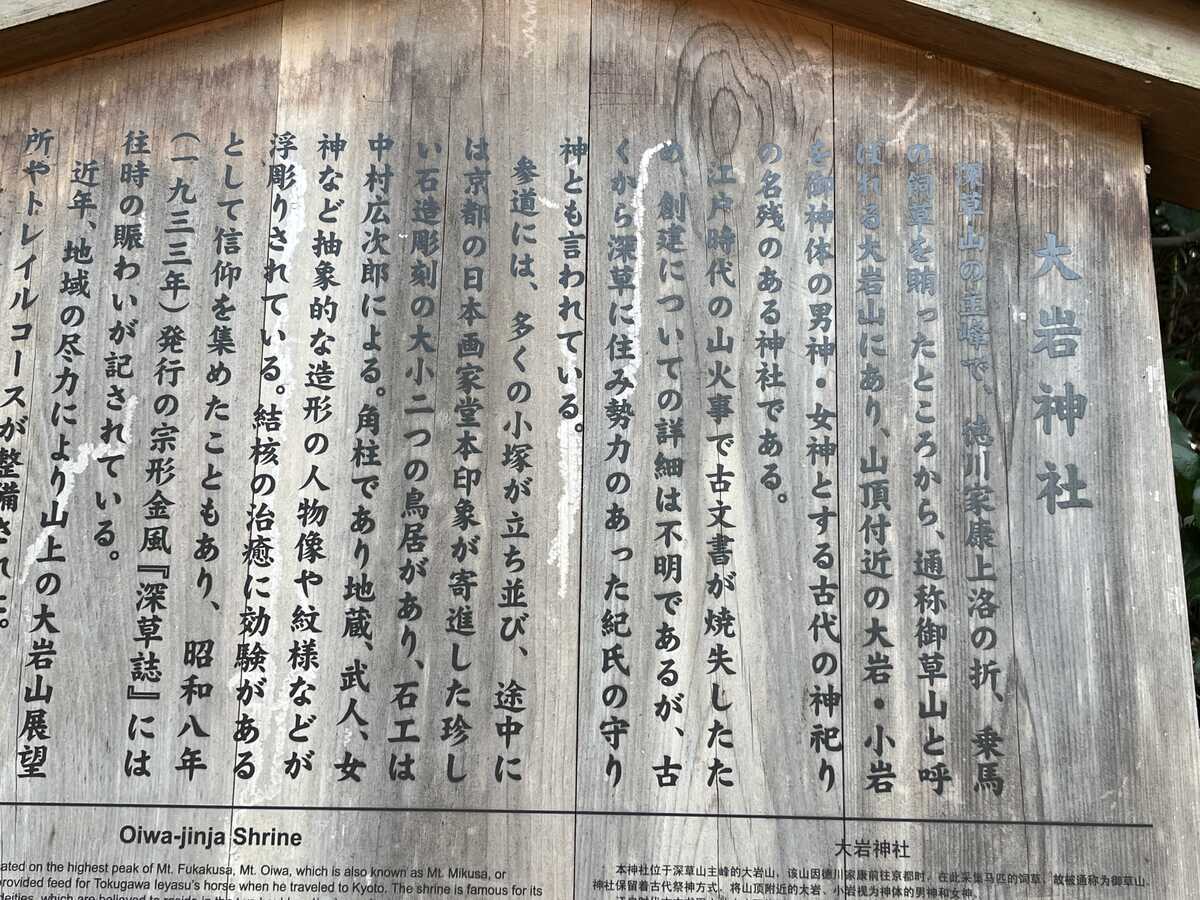 大岩神社
深草山の主峰で、徳川家康上洛の折、乗馬
の飼草を賄ったところから、通称御草山と呼
ばれる大岩山にあり、山頂付近の大岩・小岩
を御神体の男神・女神とする古代の神祀り
の名残のある神社である。
江戸時代の山火事で古文書が焼失したた
め、創建についての詳細は不明であるが、古
くから深草に住み勢力のあった紀氏の守り
神とも言われている。
参道には、多くの小塚が立ち並び、途中に
は京都の日本画家堂本印象が寄進した珍し
い石造彫刻の大小二つの鳥居があり、石工は
中村広次郎による。角柱であり地蔵、武人、女
神など抽象的な造形の人物像や紋様などが
浮彫りされている。結核の治癒に効験がある
として信仰を集めたこともあり、昭和八年
(一九三三年)発行の宗形金風『深草誌』には
往時の賑わいが記されている。
近年、地域の尽力により山上の大岩山展望
所やトレイルコースが整備された。
Oiwa-jinja Shrine
ated on the highest peak of Mt. Fukakusa, Mt. Oiwa, which is also known as Mt. Mikusa, or
provided feed for Tokugawa Ieyasu's horse when he traveled to Kyoto. The shrine is famous for its
deities, which are believed to reside in the
大岩神社
本神社位于深草山主峰的大岩山，该山因德川家康前往京都时，在此采集马匹的饲草，故被通称为御草山。
神社保留着古代祭神方式，将山顶附近的大岩、小岩视为神体的男神和女神。